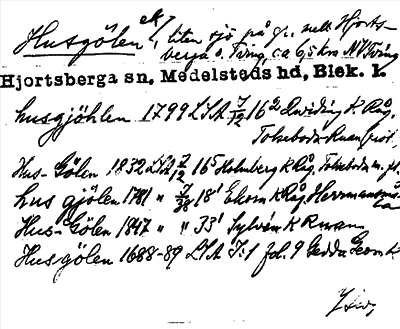 Husgölen ek?, liten sjö på gr. mell. Hjorts-
berga o. Tving, c:a 6,5 km NV Tving
Hjortsberga sn, Medelsteds hd, Blek. l.
husgjöhlen 1799 LSA 7/12 16² K Råg.
Hus-Gölen 1832 LSA 7/12 16⁵ Holmberg K Råg. Tokeboda m. fl.
hus gjölen 1781 " 7/38 18¹ Ekom K Råg. Herrmansmåla
Hus-Gölen 1847 " " 33¹ Sylvén K Ruan
Husgölen 1688-89 LSA I:1 fol. 9 Gedda Geom. k.